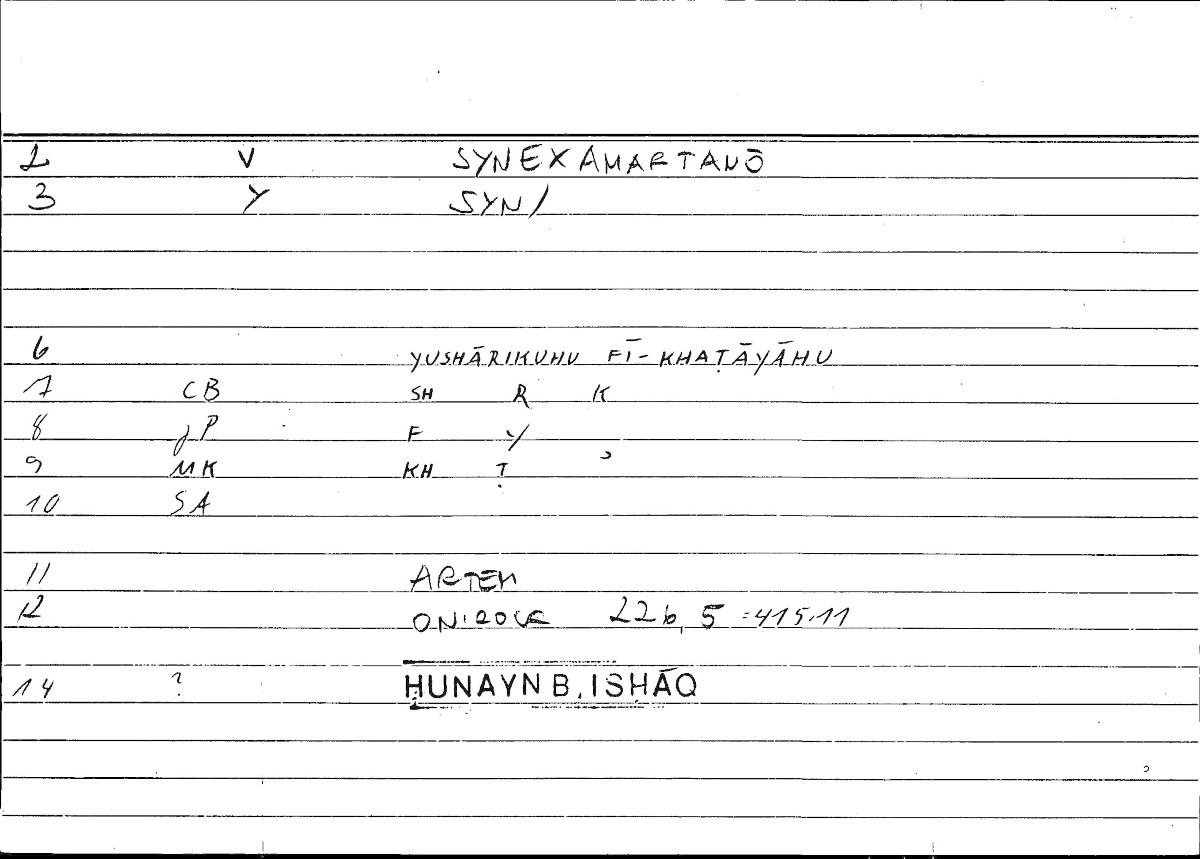 2 V SYNEXAMARTANŌ
3 Y SYN/
6 YUSHĀRIKUHU FĪ-KHAṬĀYĀHU
7 CB SH R K
8 JP F Y
9 MK KH Ṭ ʾ
10 SA
11 ARTEM
12 ONIROCR 226, 5 = 415.11
14 ? ḤUNAYN B. ISḤĀQ